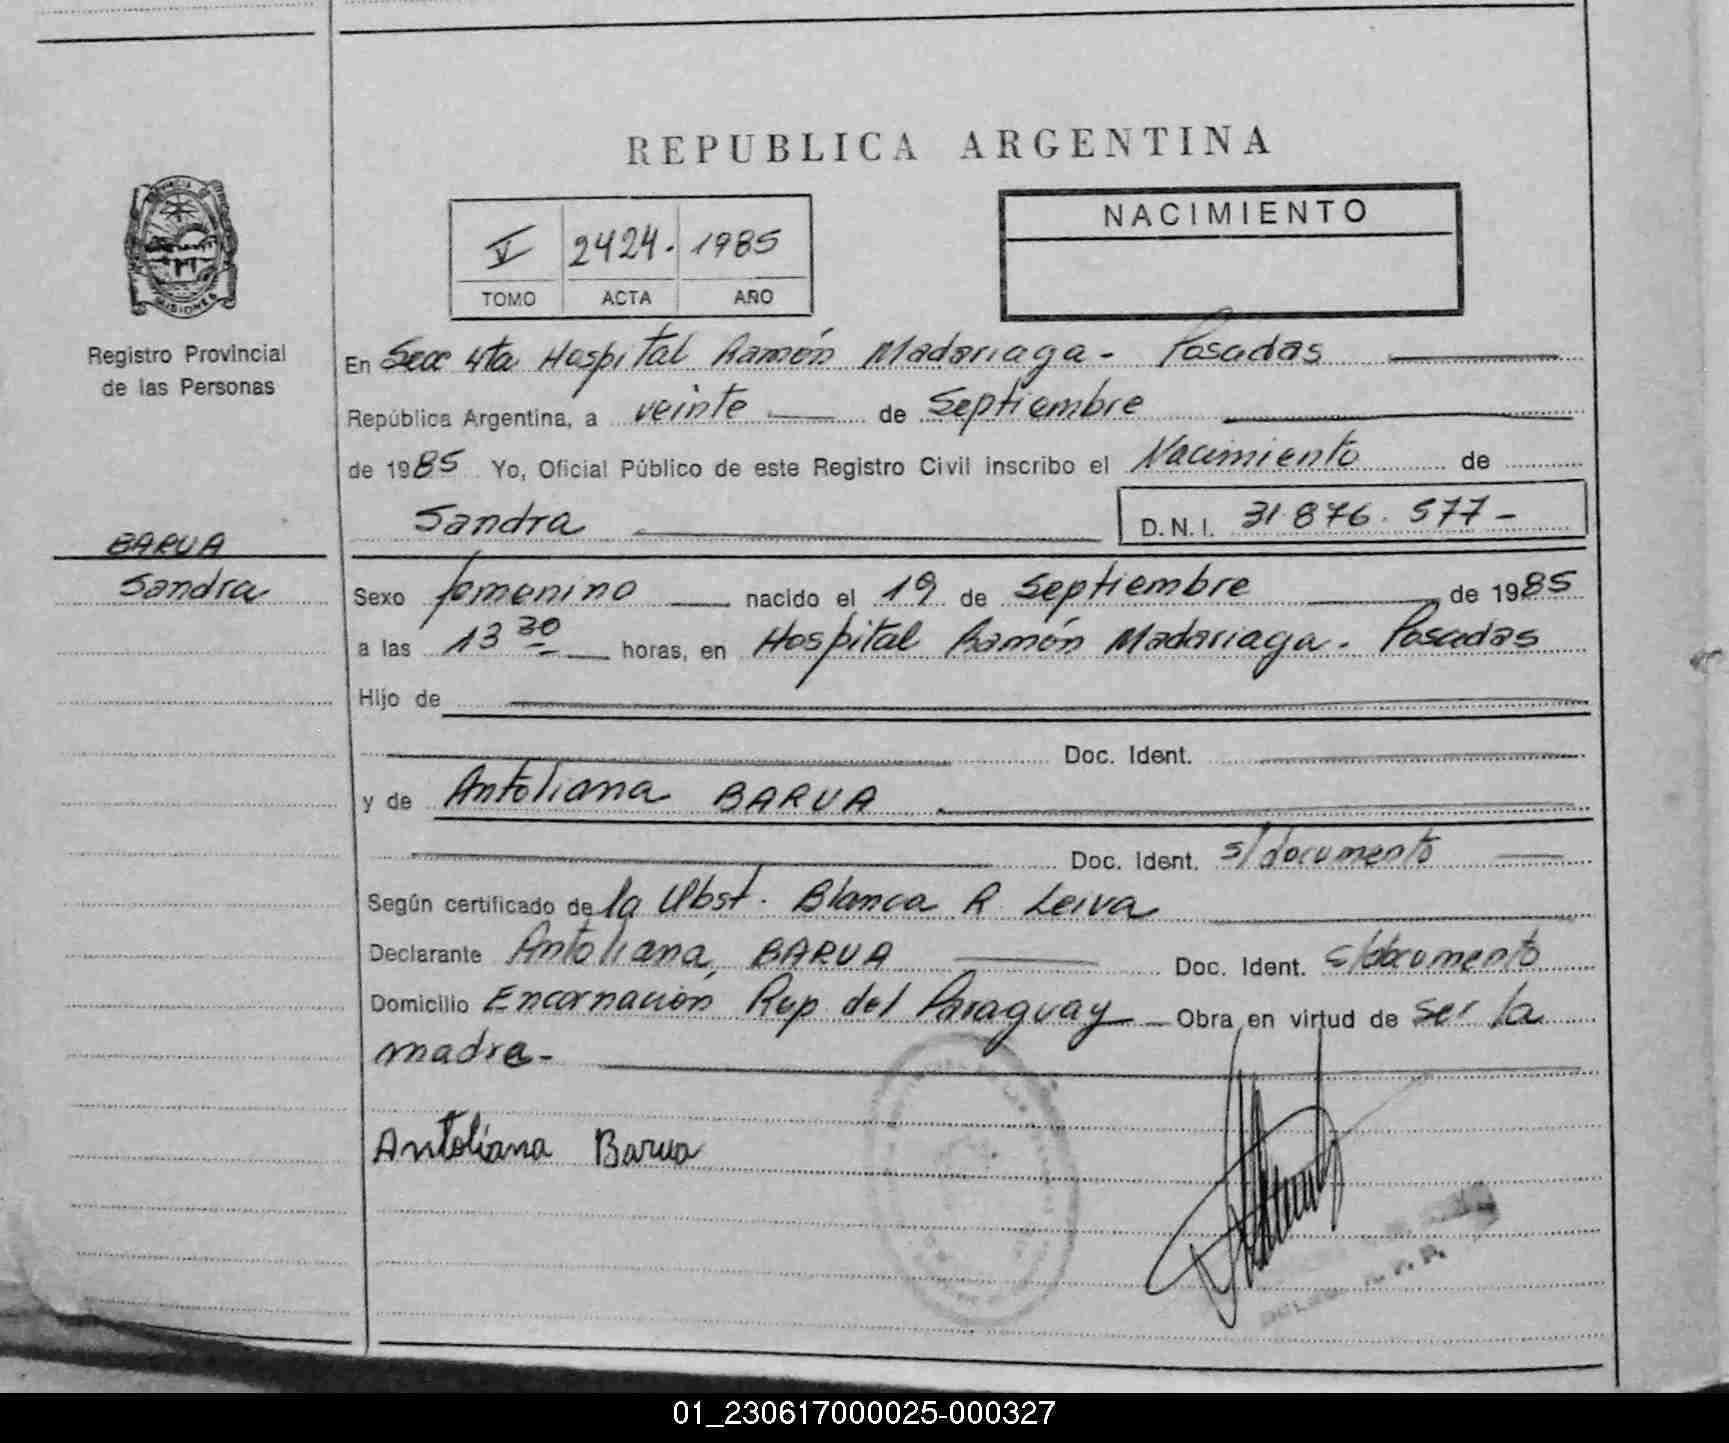 REPUBLICA ARGENTINA
V 2424. 1985
TOMO ACTA AÑO
NACIMIENTO
MISIONES
Registro Provincial
de las Personas
En Secc 4ta Hospital Ramón Madariaga - Posadas
República Argentina, a veinte de Septiembre
de 1985 Yo, Oficial Público de este Registro Civil inscribo el Nacimiento de
Sandra D.N.I. 31.876.577-
BARUA
Sandra
Sexo femenino nacido el 19 de Septiembre de 1985
a las 13 30 horas, en Hospital Ramón Madariaga. Posadas
Hijo de
Doc. Ident.
y de Antoliana BARUA
Doc. Ident. s/documento
Según certificado de la Obst. Blanca R Leiva
Declarante Antoliana, BARUA Doc. Ident. s/documento
Domicilio Encarnación Rep. del Paraguay Obra en virtud de ser la
madre-
Antoliana Barua
01_230617000025-000327